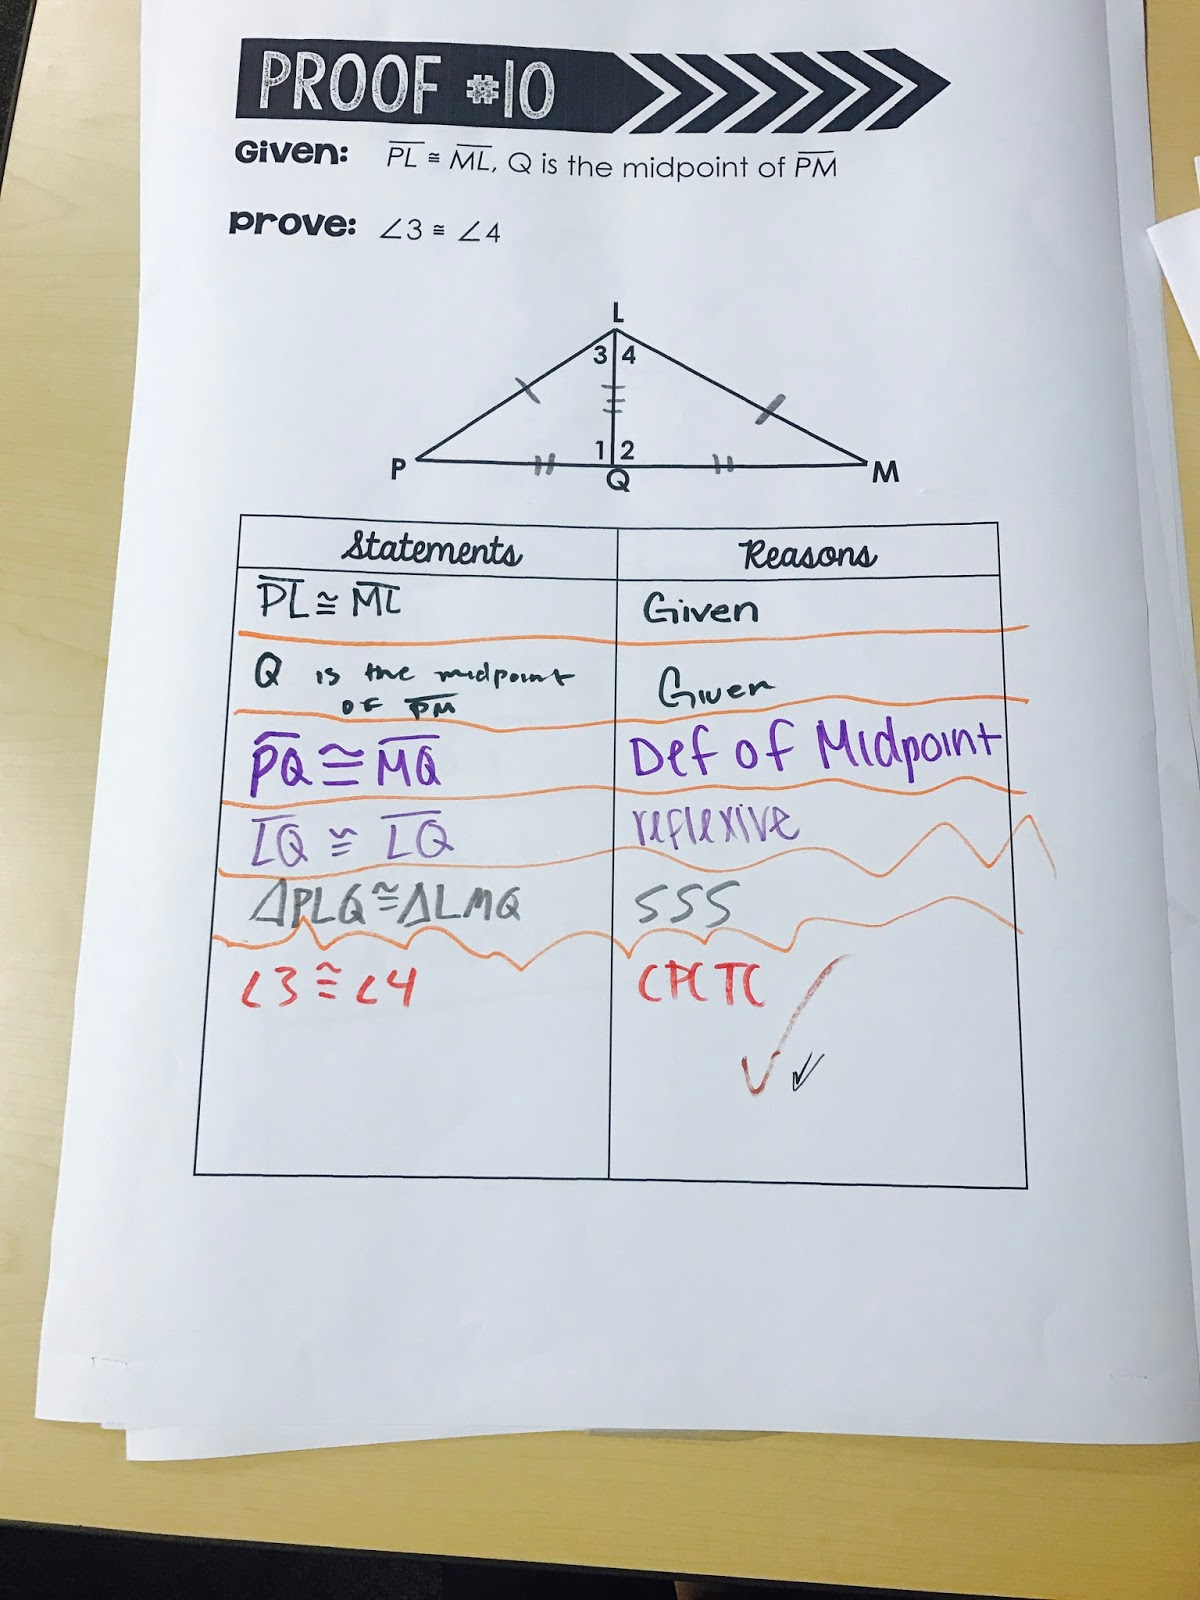 PROOF #10
Given: PL ≅ ML, Q is the midpoint of PM
Prove: ∠3 ≅ ∠4
L
3 4
1 2
P Q M
Statements Reasons
PL ≅ ML Given
Q is the midpoint Given
OF PM
PQ ≅ MQ Def of Midpoint
LQ ≅ LQ reflexive
△PLQ ≅ △LMQ SSS
∠3 ≅ ∠4 CPCTC